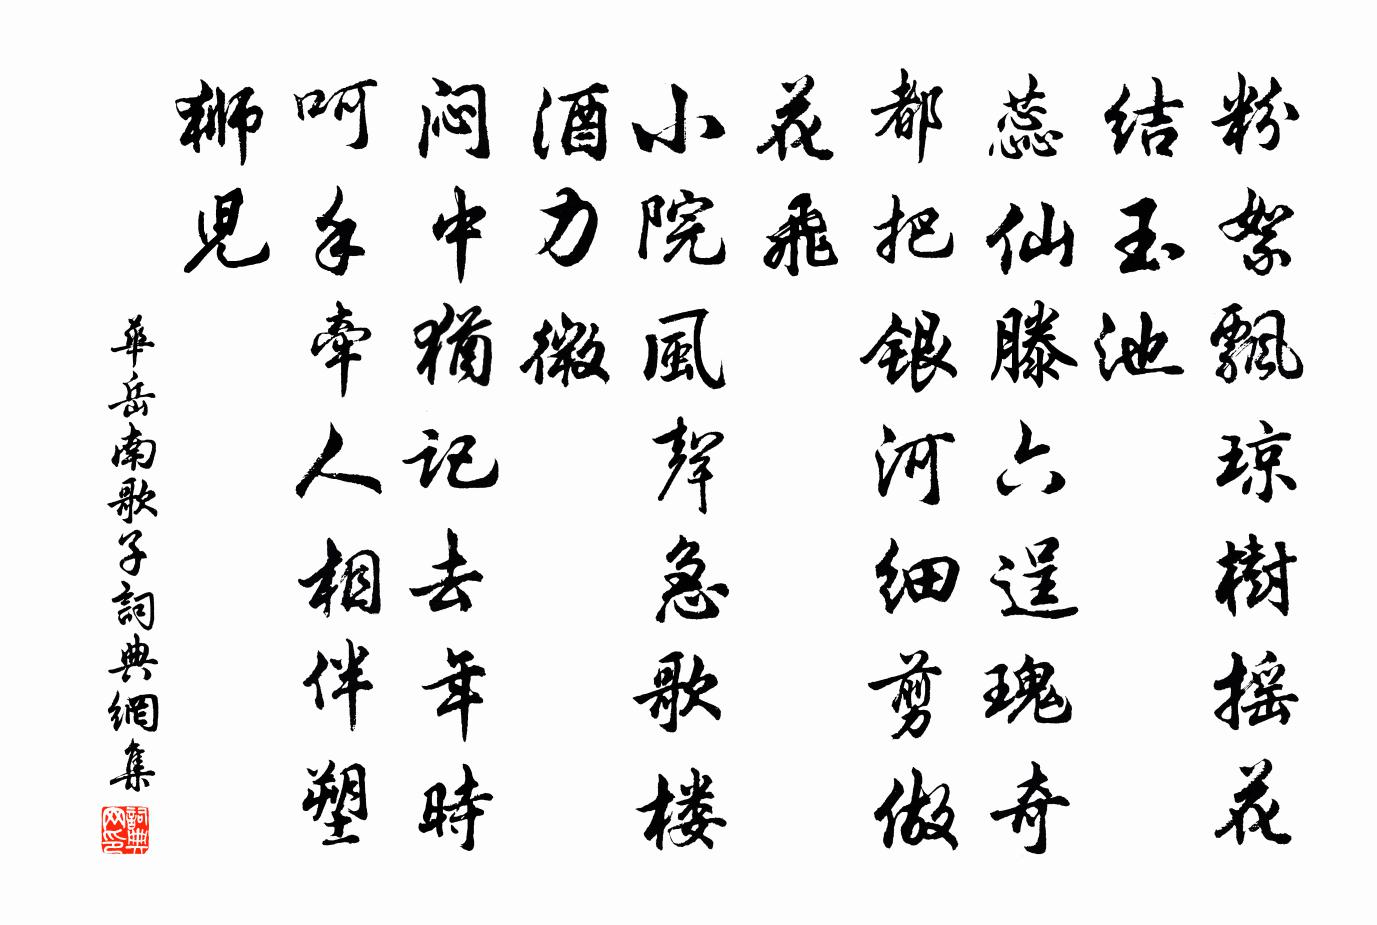 粉絮飄琼樹摇花
结玉池
蕊仙滕六逞瑰奇
都把银河细剪做
花飛
小院風聲急歌楼
酒力微
闷中猶记去年時
呵手牽人相伴塑
狮児
華岳南歌子詞典網集
詞典网印